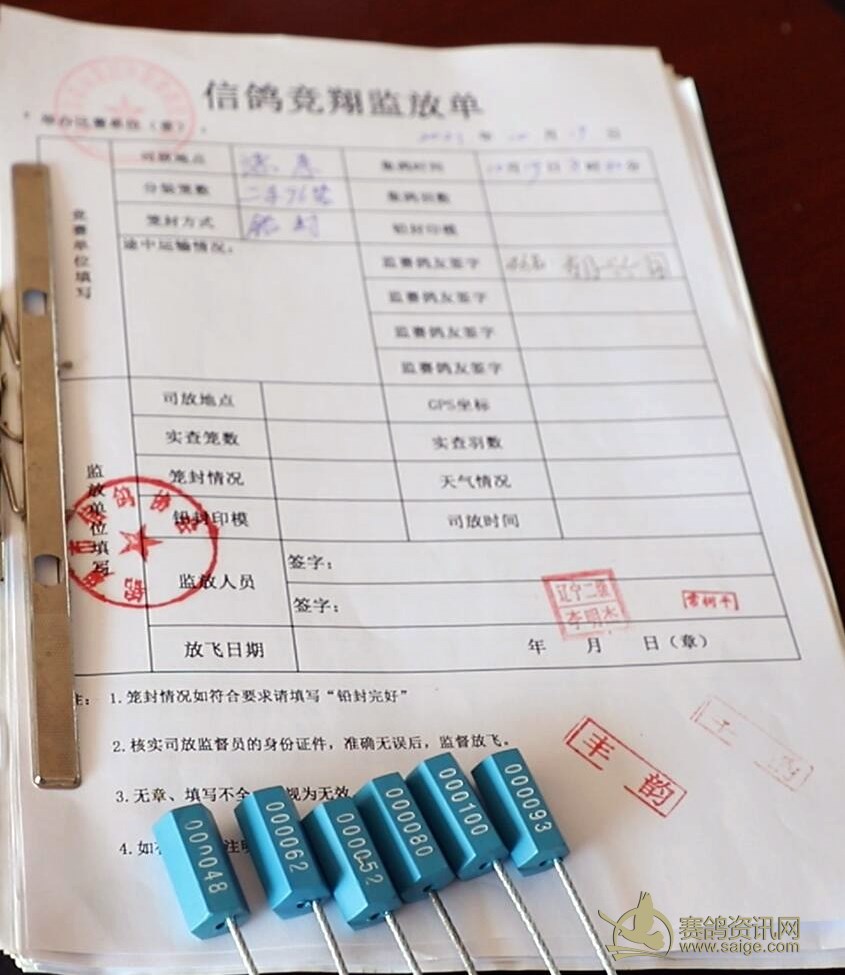 信鸽竞翔监放单
举办比赛单位（章）
年 月 日
司放地点 集鸽时间
分装笼数 集鸽羽数
笼封方式 铅封 铅封印模
竞赛单位填写
途中运输情况：
监赛鸽友签字
监赛鸽友签字
监赛鸽友签字
监赛鸽友签字
监放单位填写
司放地点 GPS坐标
实查笼数 实查羽数
笼封情况 天气情况
铅封印模 司放时间
监放人员 签字：
签字：
辽宁二级
李明杰
放飞日期 年 月 日（章）
1.笼封情况如符合要求请填写“铅封完好”
2.核实司放监督员的身份证件，准确无误后，监督放飞。
3.无章、填写不全 视为无效
4.如
丰韵
000048
000062
000052
000080
000100
000093
赛鸽资讯网
www.saige.com